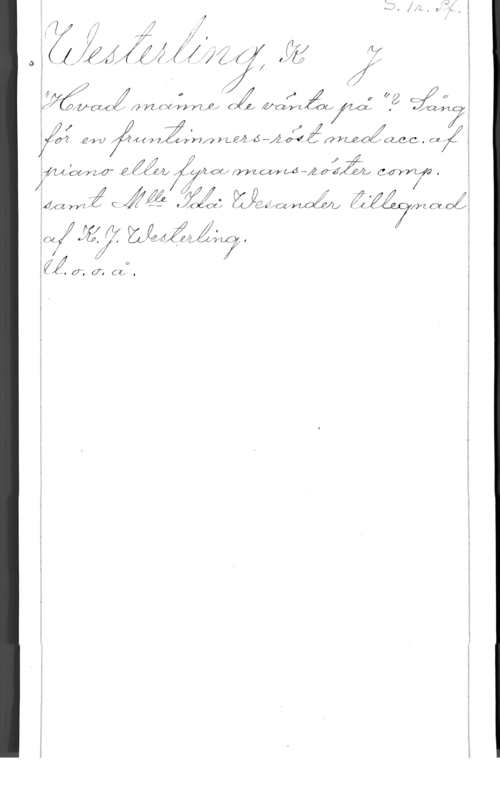 S. 1r. Pf.
Westerling, K J
"Hvad månne de vänta på"? Sång
för en fruntimmers-röst med acc. af
piano eller fyra mans-röster comp.
samt Mlle Ida Wesander tillegnad
af K. J. Westerling.
U. o. o. å.